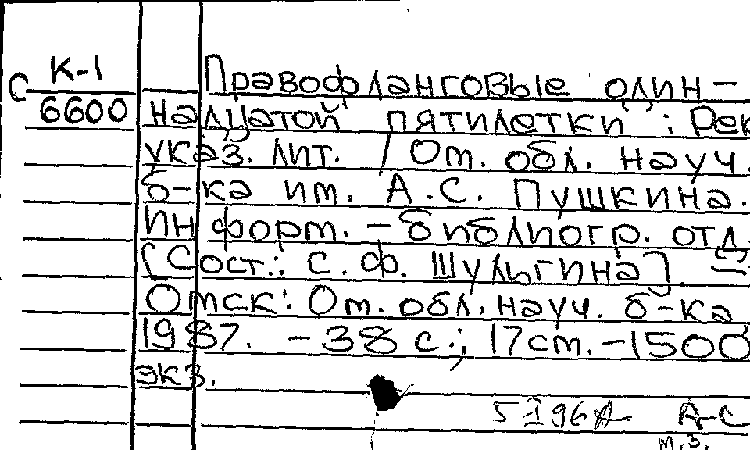 К-1 Правофланговые один-
С 6600 надцатой пятилетки : Рек.
указ. лит. / Ом. обл. науч.
б-ка им. А.С. Пушкина.
Информ.-библиогр. отд.
[Сост.: С.Ф. Шульгина] -
Омск: Ом. обл. науч. б-ка
1987. - 38 с.; 17 см. - 1500
экз.
А-С
м.з.